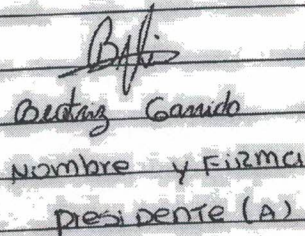 Beatriz Garrido
Nombre y Firma
presidente (A)